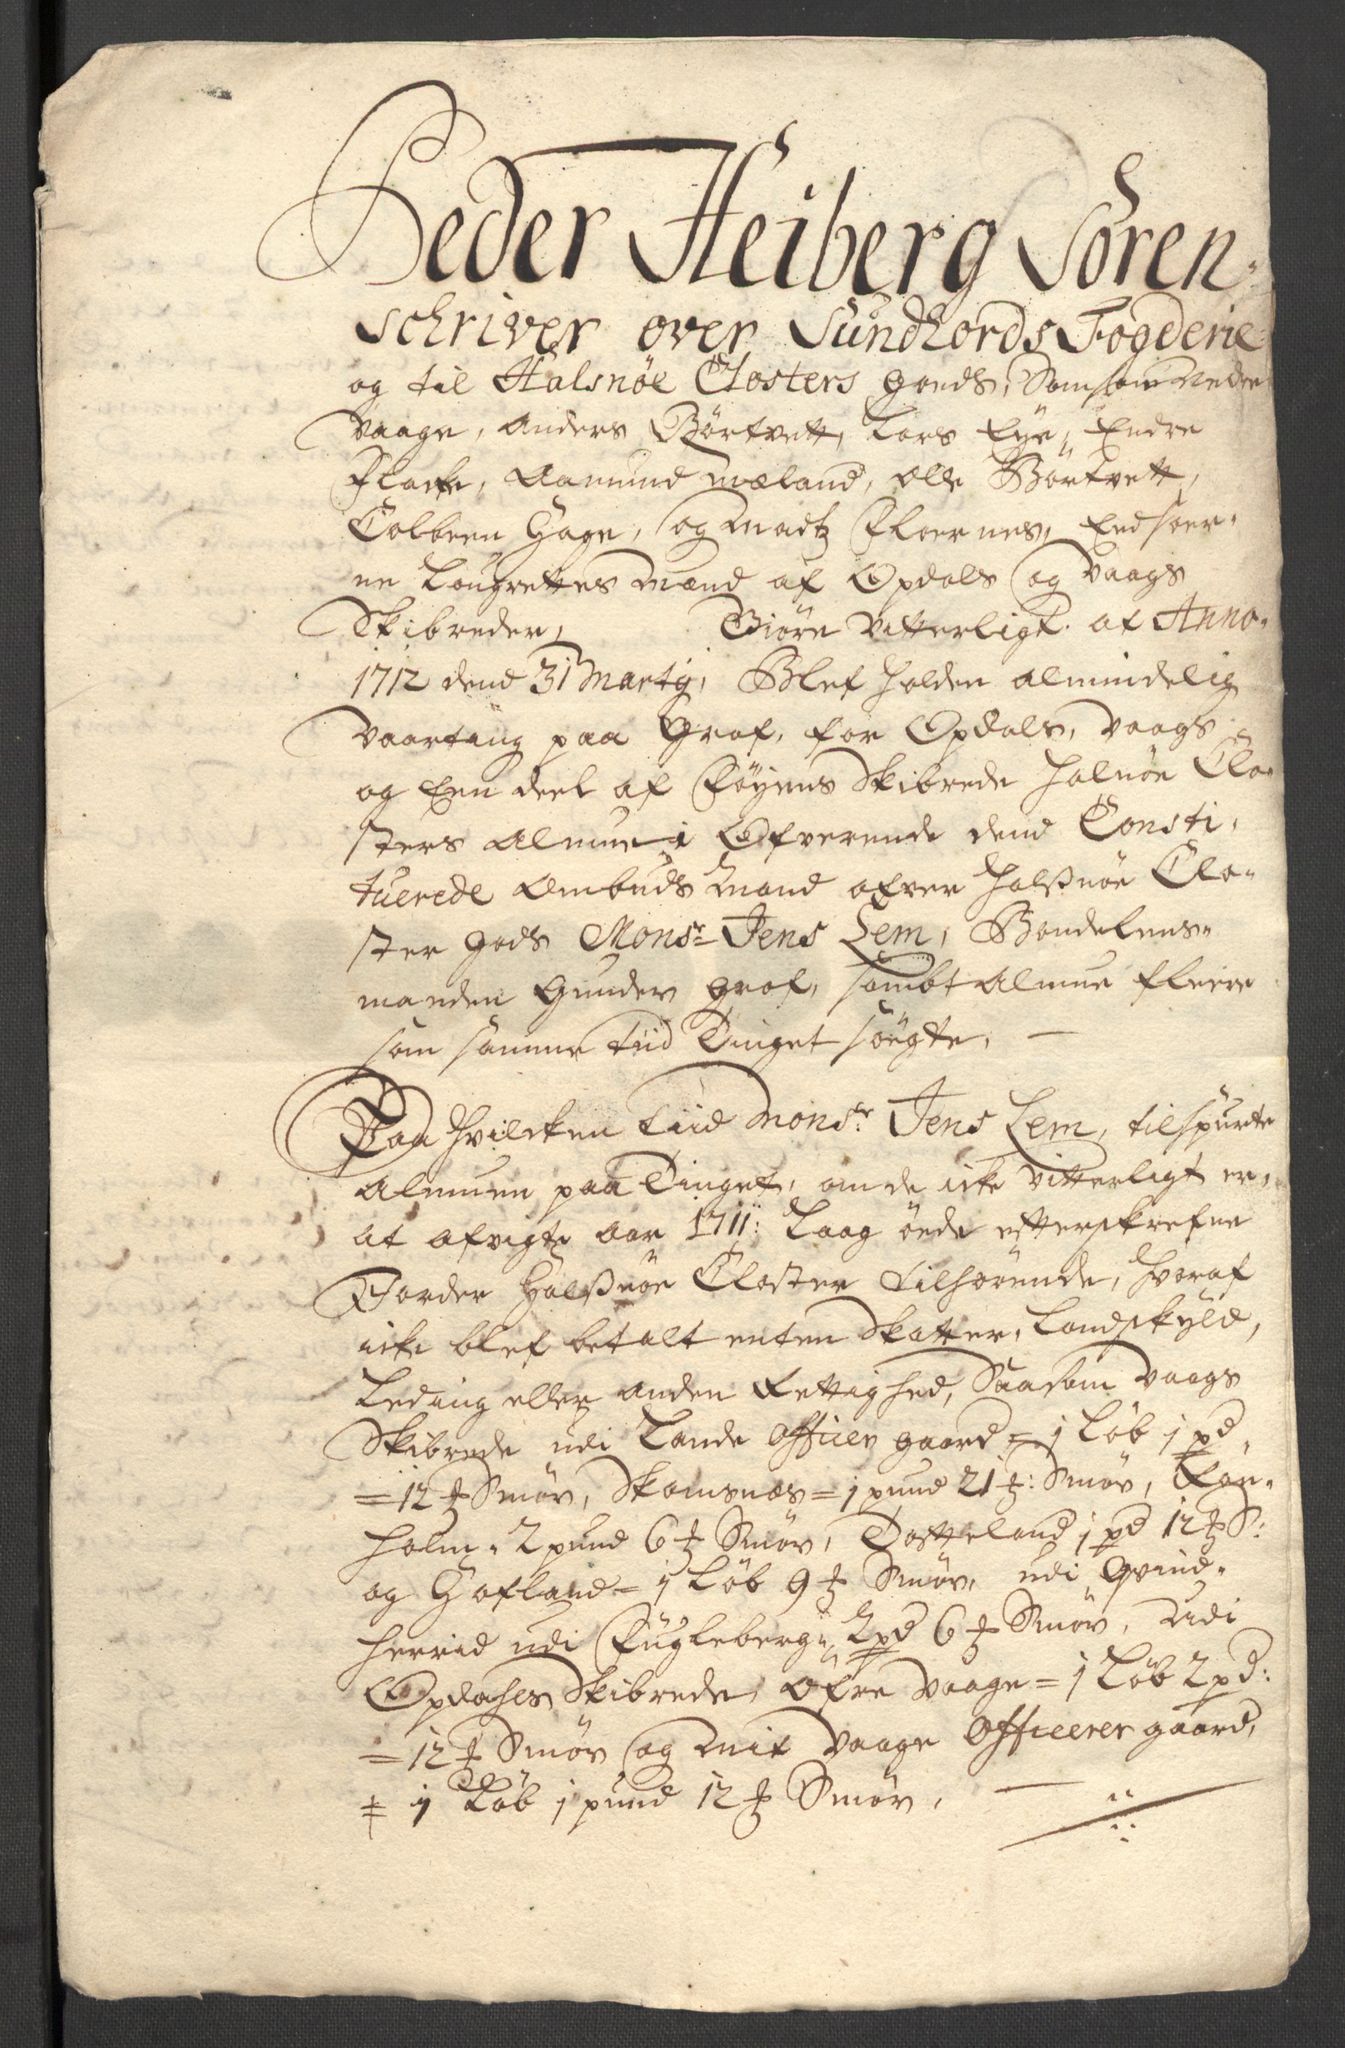 Peder Heiberg Soren-
schriver over Sundhords Fogderie
og til Halsnöe Closters gouds, Samsom Nedre
Vaage, Anders Börtvett, Lars Eye, Endre
Flacke, Aamund Mæland, Olle Börtvett,
Colbeen Hage, og Madtz Floernes, Eedsoer-
ne Laugrettes Mænd af Opdals og Vaags
Skibreder, Giöre Vitterligt at Anno
1712 dend 31 Martij, Blef holden almindelig
Vaarting paa Graf, for Opdals, Vaags
og Een deel af Föyens Skibrede Halnöe Clo-
sters Almue i Ofverende dend Consti-
tuerede Ombuds Mand ofver Halsnöe Clo-
ster gods Monsr Jens Lem, Bondelens-
manden Gunder Graf, sambt Almue fleere
som samme tiid Tinget sögte,
Paa hvilcken tiid Monsr: Jens Lem, tilspurte
Almuen paa Tinget, om de icke vitterligt er,
at afvigte aar 1711: laag öede efterskrefne
Jorder Halsnöe Closter tilhörende, hvoraf
icke blef betalt enten Skatter, Landskyld,
Leding eller anden Rettighed, Saasom Vaags
Skibrede udi Lande Officer gaard = 1 Löb 1 pd
= 12 ℔ Smör, Skamsnæs = 1 pund 21 ℔: Smör,
holm = 2 pund 6 ℔ Smör, Dotteland 1 pd 12 ℔ S:
og Hofland = 1 Löb 9 ℔ Smör, udi Qvind-
herrid udi Fugleberg = 2 pd 6 ℔ Smör, Udi
Opdahls Skibrede, Ofre Vaage = 1 Löb 2 pd:
= 12 ℔ Smör og Mit Vaage Officerer gaard,
= 1 Löb 1 pund 12 ℔ Smör,